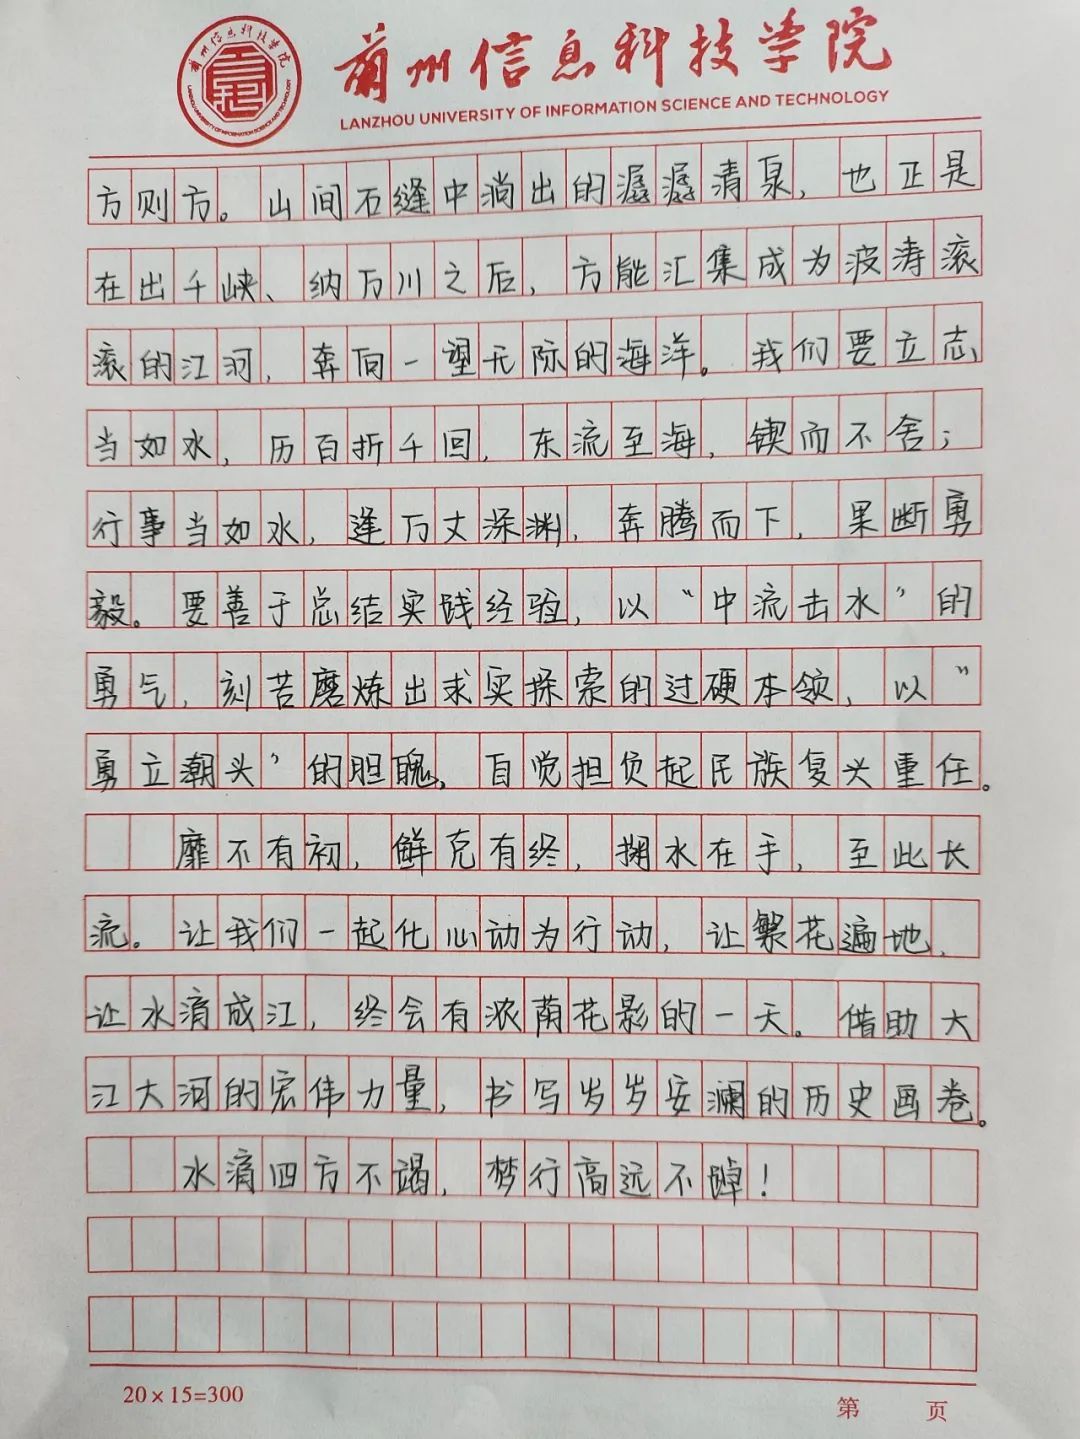 兰州信息科技学院
兰州信息科技学院
LANZHOU UNIVERSITY OF INFORMATION SCIENCE AND TECHNOLOGY
LANZHOU UNIVERSITY OF INFORMATION SCIENCE AND TECHNOLOGY
方则方。山间石缝中淌出的潺潺清泉，也正是
在出千峡、纳万川之后，方能汇集成为波涛滚
滚的江河，奔向一望无际的海洋。我们要立志
当如水，历百折千回，东流至海，锲而不舍；
行事当如水，逢万丈深渊，奔腾而下，果断勇
毅。要善于总结实践经验，以“中流击水”的
勇气，刻苦磨炼出求实探索的过硬本领，以“
勇立潮头”的胆魄，自觉担负起民族复兴重任。
靡不有初，鲜克有终，掬水在手，至此长
流。让我们一起化心动为行动，让繁花遍地，
让水滴成江，终会有浓荫花影的一天。借助大
江大河的宏伟力量，书写岁岁安澜的历史画卷。
水滴四方不竭，梦行高远不惮！
20×15=300
第 页